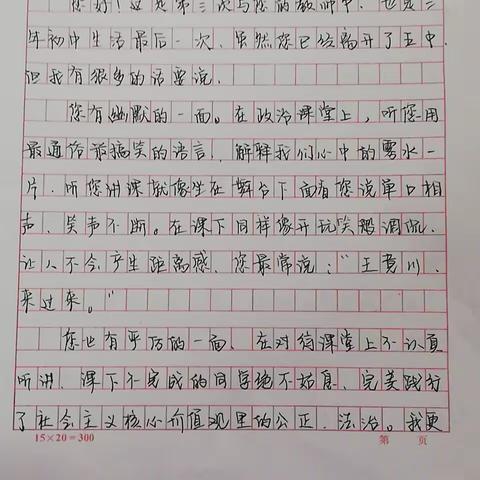 您好!这是第三次与您的教师节,也是三
年初中生活最后一次,虽然您已经离开了五中,
但我有很多的话要说.
您有幽默的一面。在政治课堂上,听您用
最通俗最搞笑的语言!解释我们心中的雾水一
片.听您讲课就像坐在舞台下面看您说单口相
声、笑声不断。在课下同样像开玩笑般调侃.
让人不会产生距离感、您最常说:“王竟川、
来过来。”
您也有严厉的一面、在对待课堂上不认真
听讲、课下不完成的同学绝不姑息、完美践行
了社会主义核心价值观里的公正、法治。我更
15×20=300
第 页